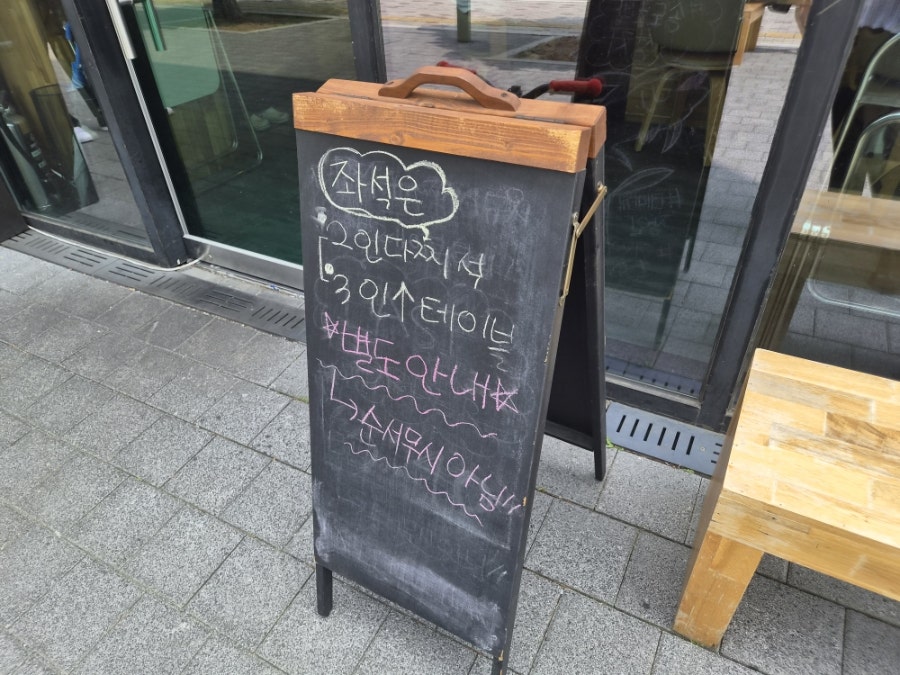 좌석은
2인 다찌석
3인↑ 테이블
☆별도안내☆
↳순서무시아님!!